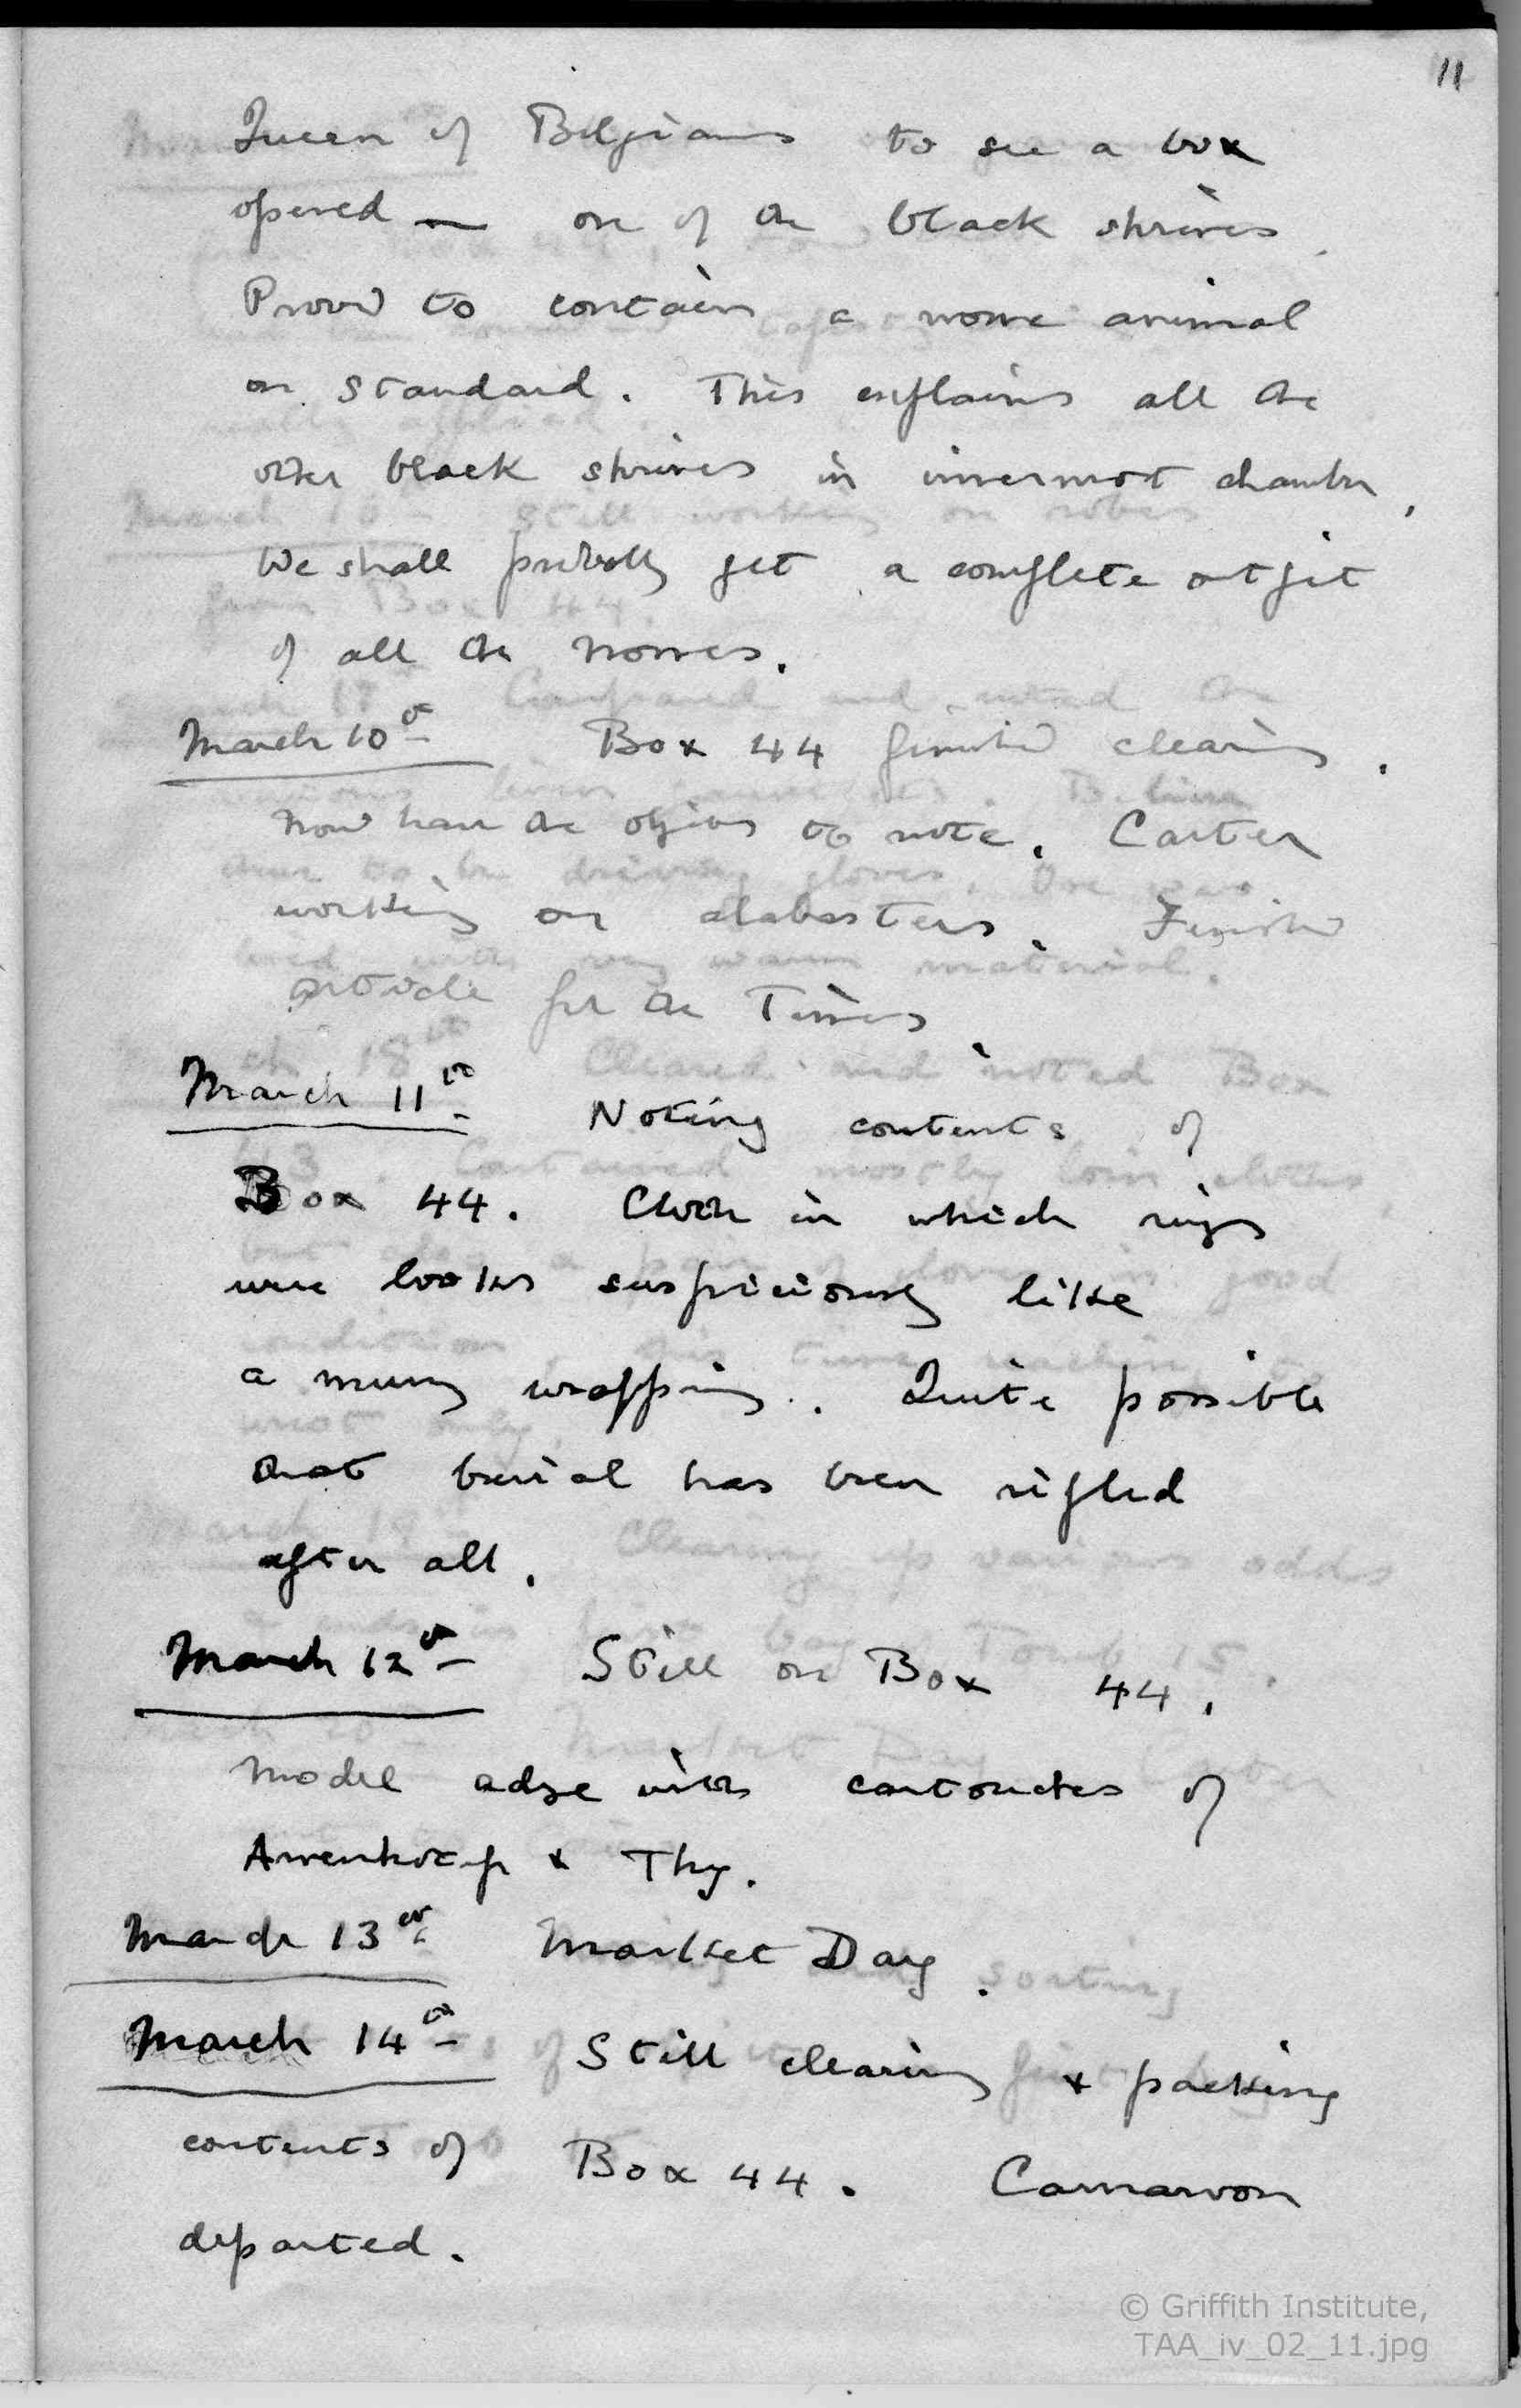 11
Queen of Belgians to see a box
opened — one of the black shrines.
Proved to contain a nome animal
on standard. This explains all the
other black shrines in innermost chamber.
We shall probably get a complete outfit
of all the nomes.
March 10th Box 44 finished clearing.
Now have the objects to note. Carter
working on alabasters. Finished
article for the Times.
March 11th Noting contents of
Box 44. Cloth in which rings
were looks suspiciously like
a mummy wrapping. Quite possible
that burial has been rifled
after all.
March 12th Still on Box 44.
Model adze with cartouches of
Amenhotep & Thy.
March 13th Market Day.
March 14th Still clearing & packing
contents of Box 44. Carnarvon
departed.
© Griffith Institute,
TAA_iv_02_11.jpg